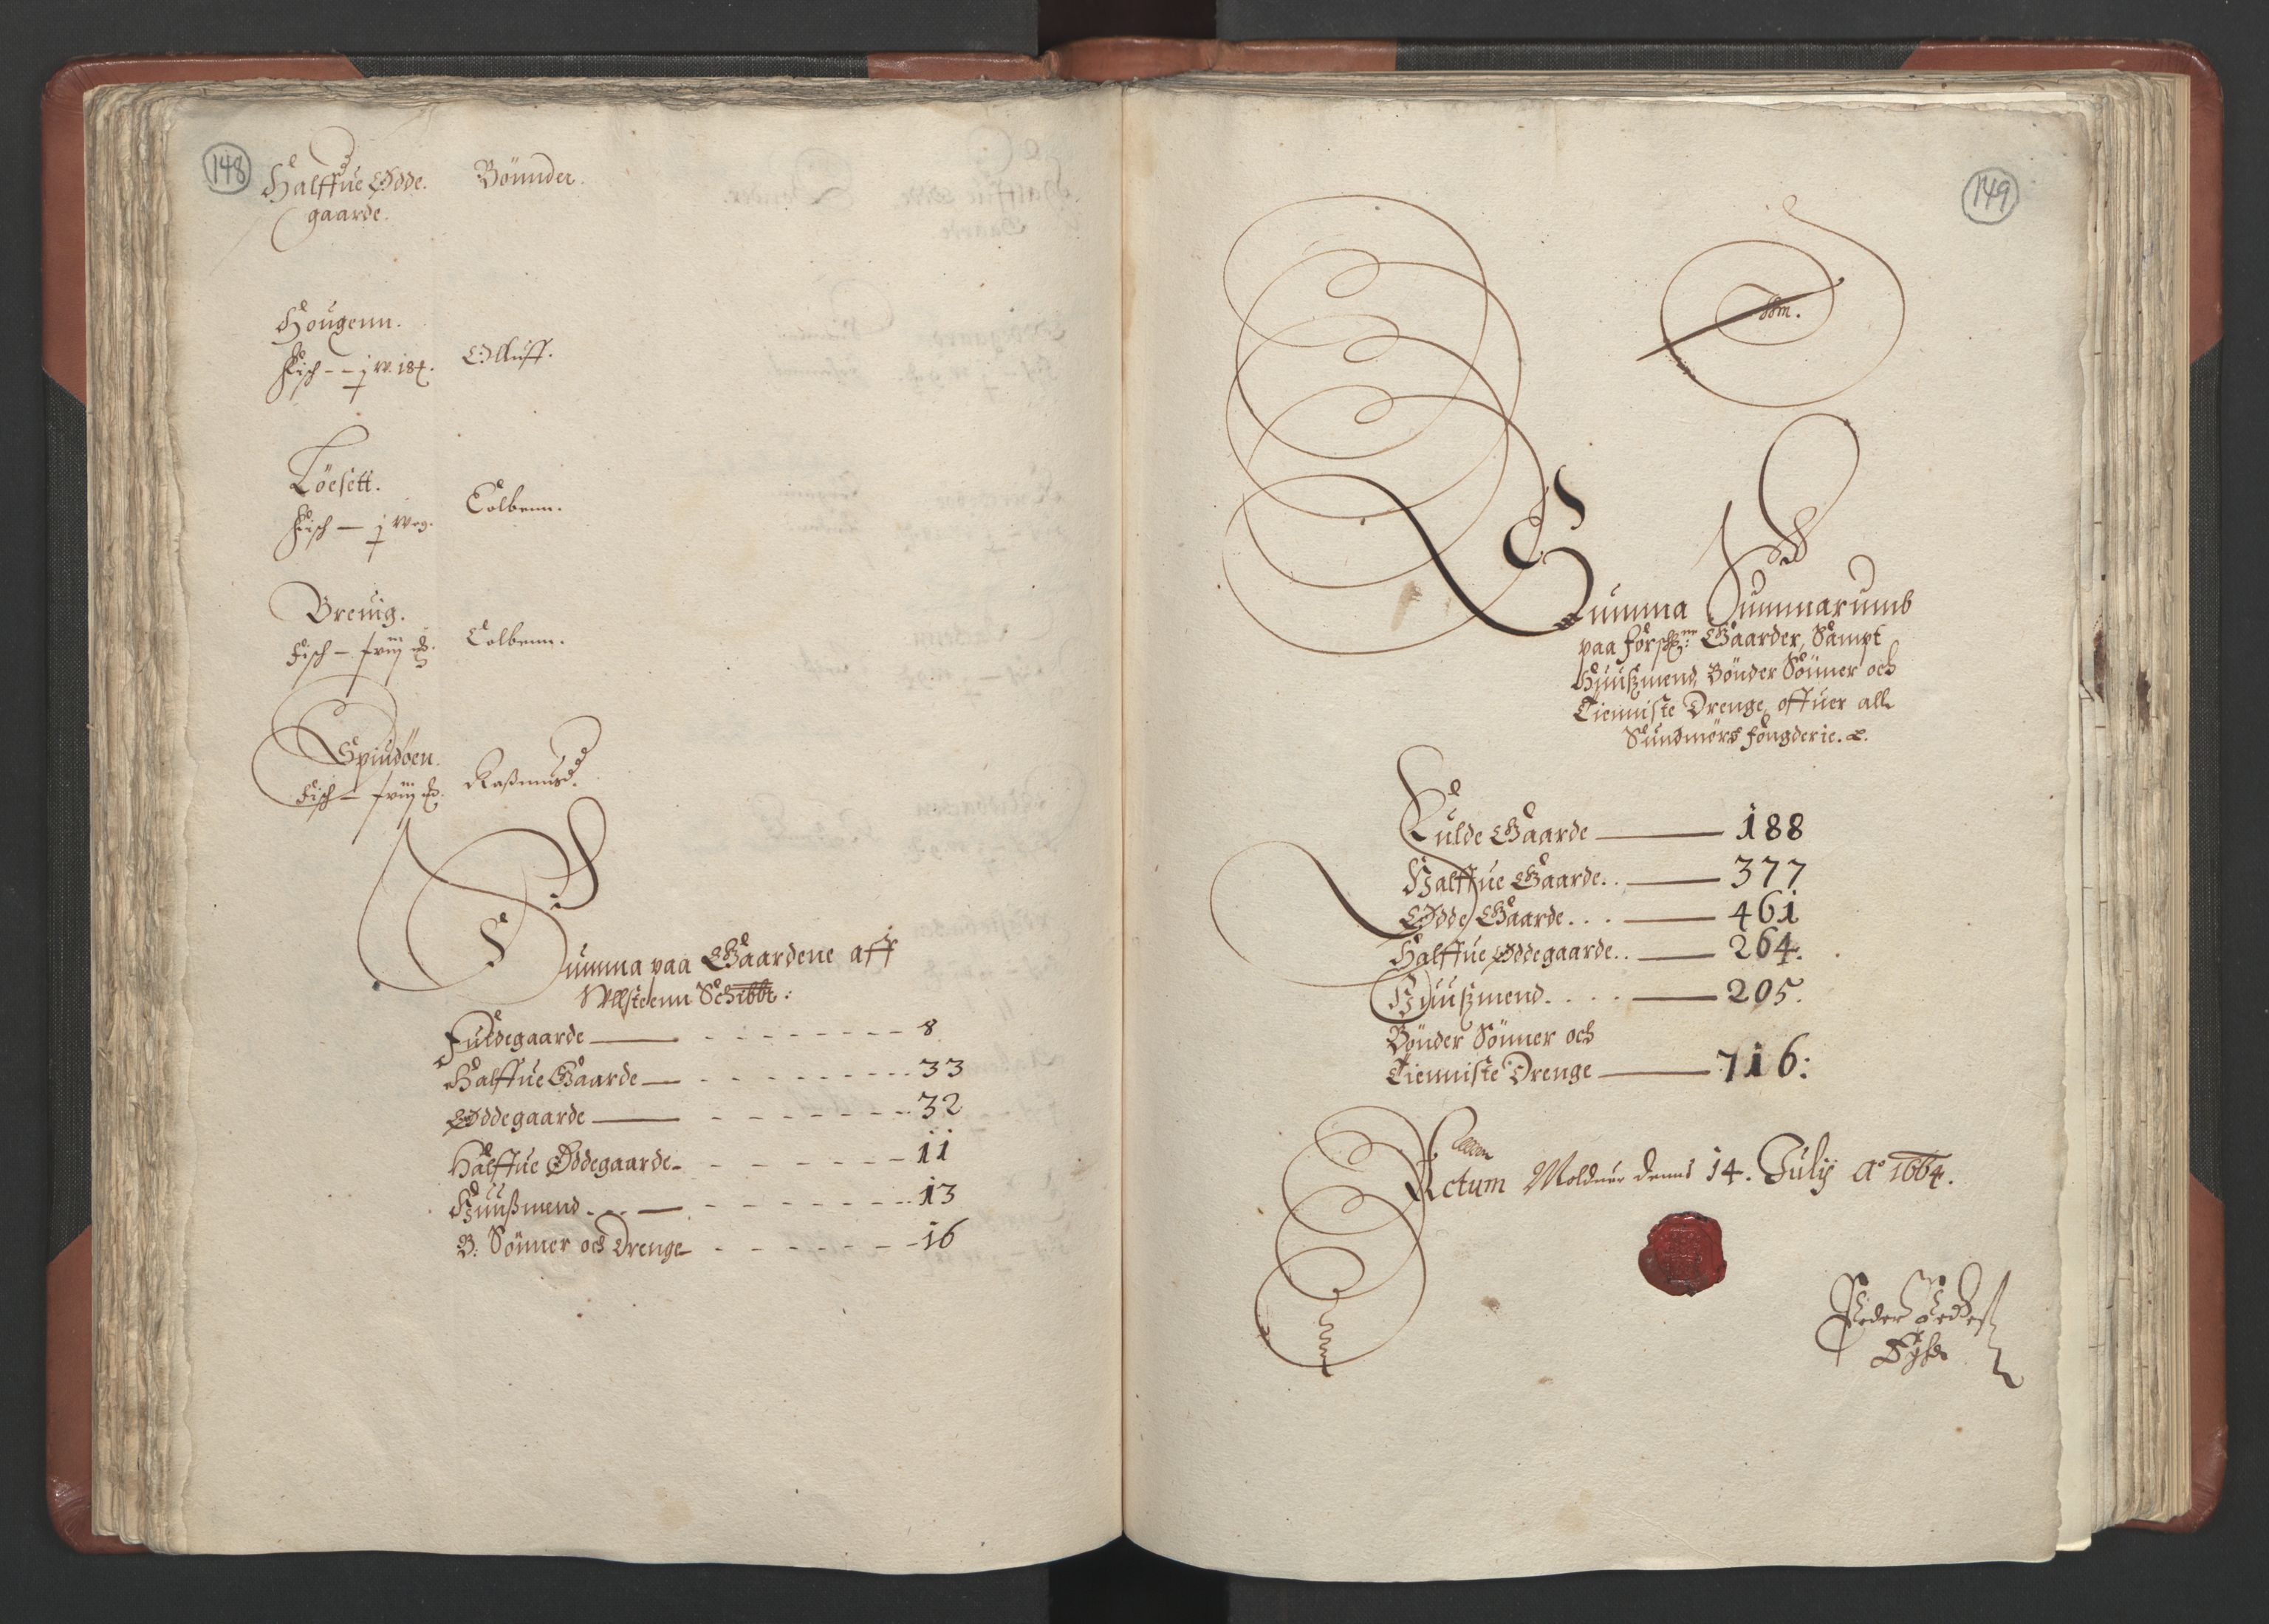 148
Halffue Ødde. Bönnder.
gaarde.
Hougenn.
Fisch - - j w. 18 Olluff.
Löesett.
Fisch — j Wog. Colbenn.
Brenig.
Fisch - Colbenn.
Spindöen.
Fisch - Rasmus
Summa paa Gaardene aff
Vllsteenn Schibbr:
Fuldegaarde — 8
Halffue Gaarde — 33
Øddegaarde — 32
Halffue Øddegaarde - 11
Huußmend . . . — 13
B: Sönner och Drenge - 16
149
Summa Summarumb
paa forschr: Gaarder, Sampt
Huußmend, Bönder Sönner och
Tienniste Drenge, offuer alle
Sundmörs fougderie.
Fulde Gaarde — 188
Halffue Gaarde. . — 377
Ødde Gaarde . . . — 461
Halffue Øddegaarde. . — 264.
Huußmend. . . . — 205.
Bönder Sönner och
Tienniste Drenge — 716:
Actum Molduer denn 14. Julij Ao 1664.
Peder